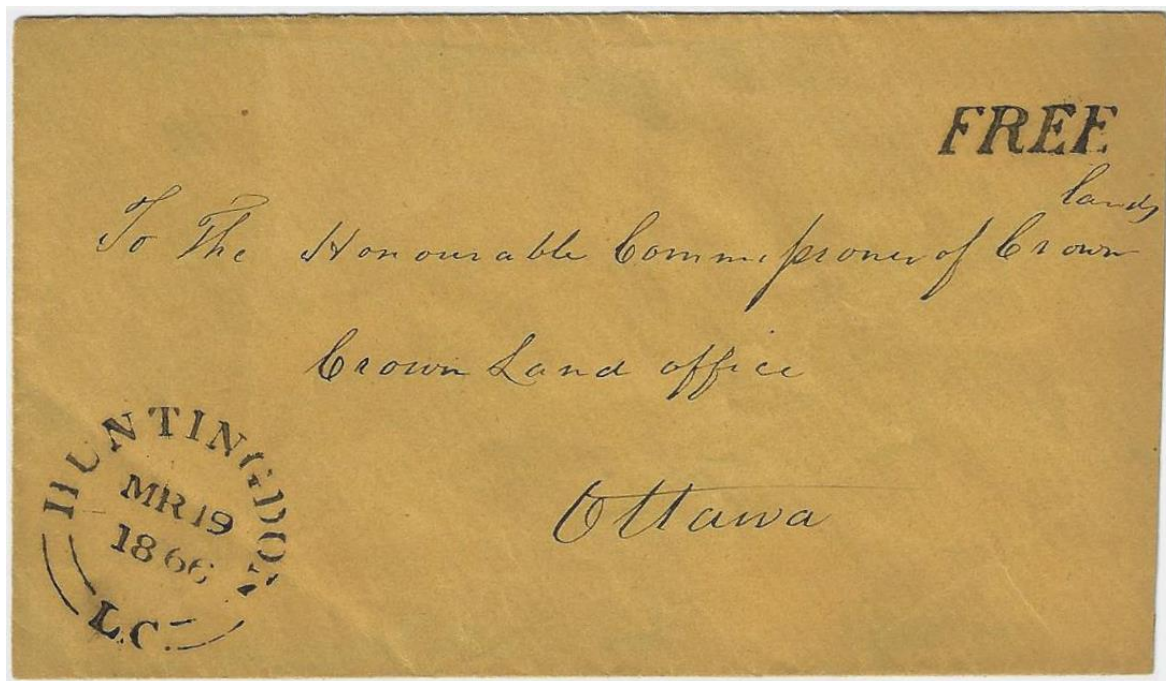 FREE
lands
To The Honourable Commissioner of Crown
Crown Land office
Ottawa
HUNTINGDON
MR 19
1866
L.C.